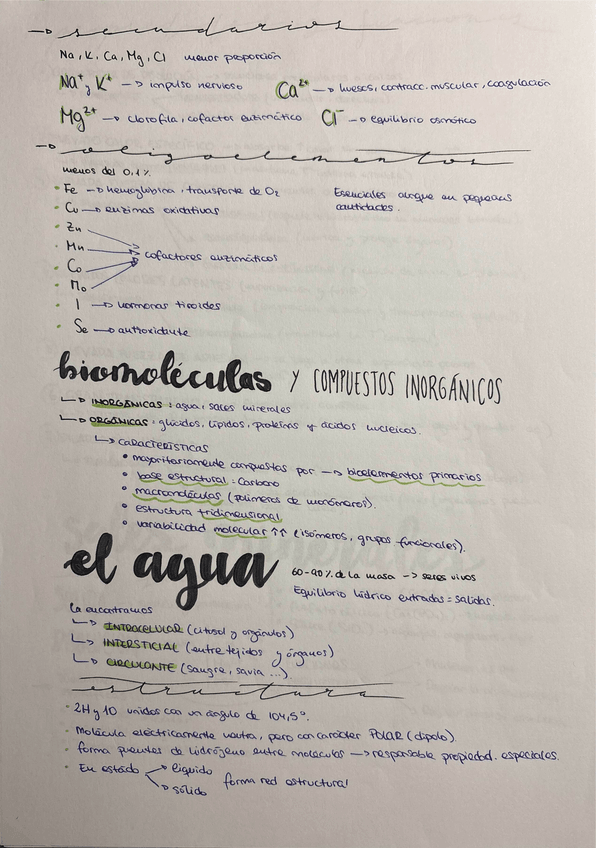 → secundarios
Na, K, Ca, Mg, Cl menor proporción
Na⁺ y K⁺ → impulso nervioso Ca²⁺ → huesos, contracc. muscular, coagulación
Mg²⁺ → clorofila, cofactos enzimático Cl⁻ → equilibrio osmótico
→ oligoelementos
menos del 0,1%
• Fe → hemoglobina, transporte de O₂ Esenciales aunque en pequeñas
cantidades.
• Cu → enzimas oxidativas
• Zn
• Mn → cofactores enzimáticos
• Co
• Mo
• I → hormonas tiroides
• Se → antioxidante
biomoléculas Y COMPUESTOS INORGÁNICOS
↳ INORGÁNICAS: agua, sales minerales
↳ ORGÁNICAS: glúcidos, lípidos, proteínas y ácidos nucleicos.
↳ CARACTERÍSTICAS
• mayoritariamente compuestas por → bioelementos primarios
• base estructural: Carbono
• macromoléculas (polímeros de monómeros).
• estructura tridimensional
• variabilidad molecular ↑↑ (isómeros, grupos funcionales).
el agua 60-90% de la masa → seres vivos
Equilibrio hídrico entradas = salidas.
La encontramos
↳ INTRACELULAR (citosol y orgánulos)
↳ INTERSTICIAL (entre tejidos y órganos)
↳ CIRCULANTE (sangre, savia ...)
estructura
• 2H y 1O unidos con un ángulo de 104,5°.
• Molécula eléctricamente neutra, pero con carácter POLAR (dipolo).
• forma puentes de hidrógeno entre moléculas → responsable propiedad. especiales.
• En estado → líquido forma red estructural
→ sólido